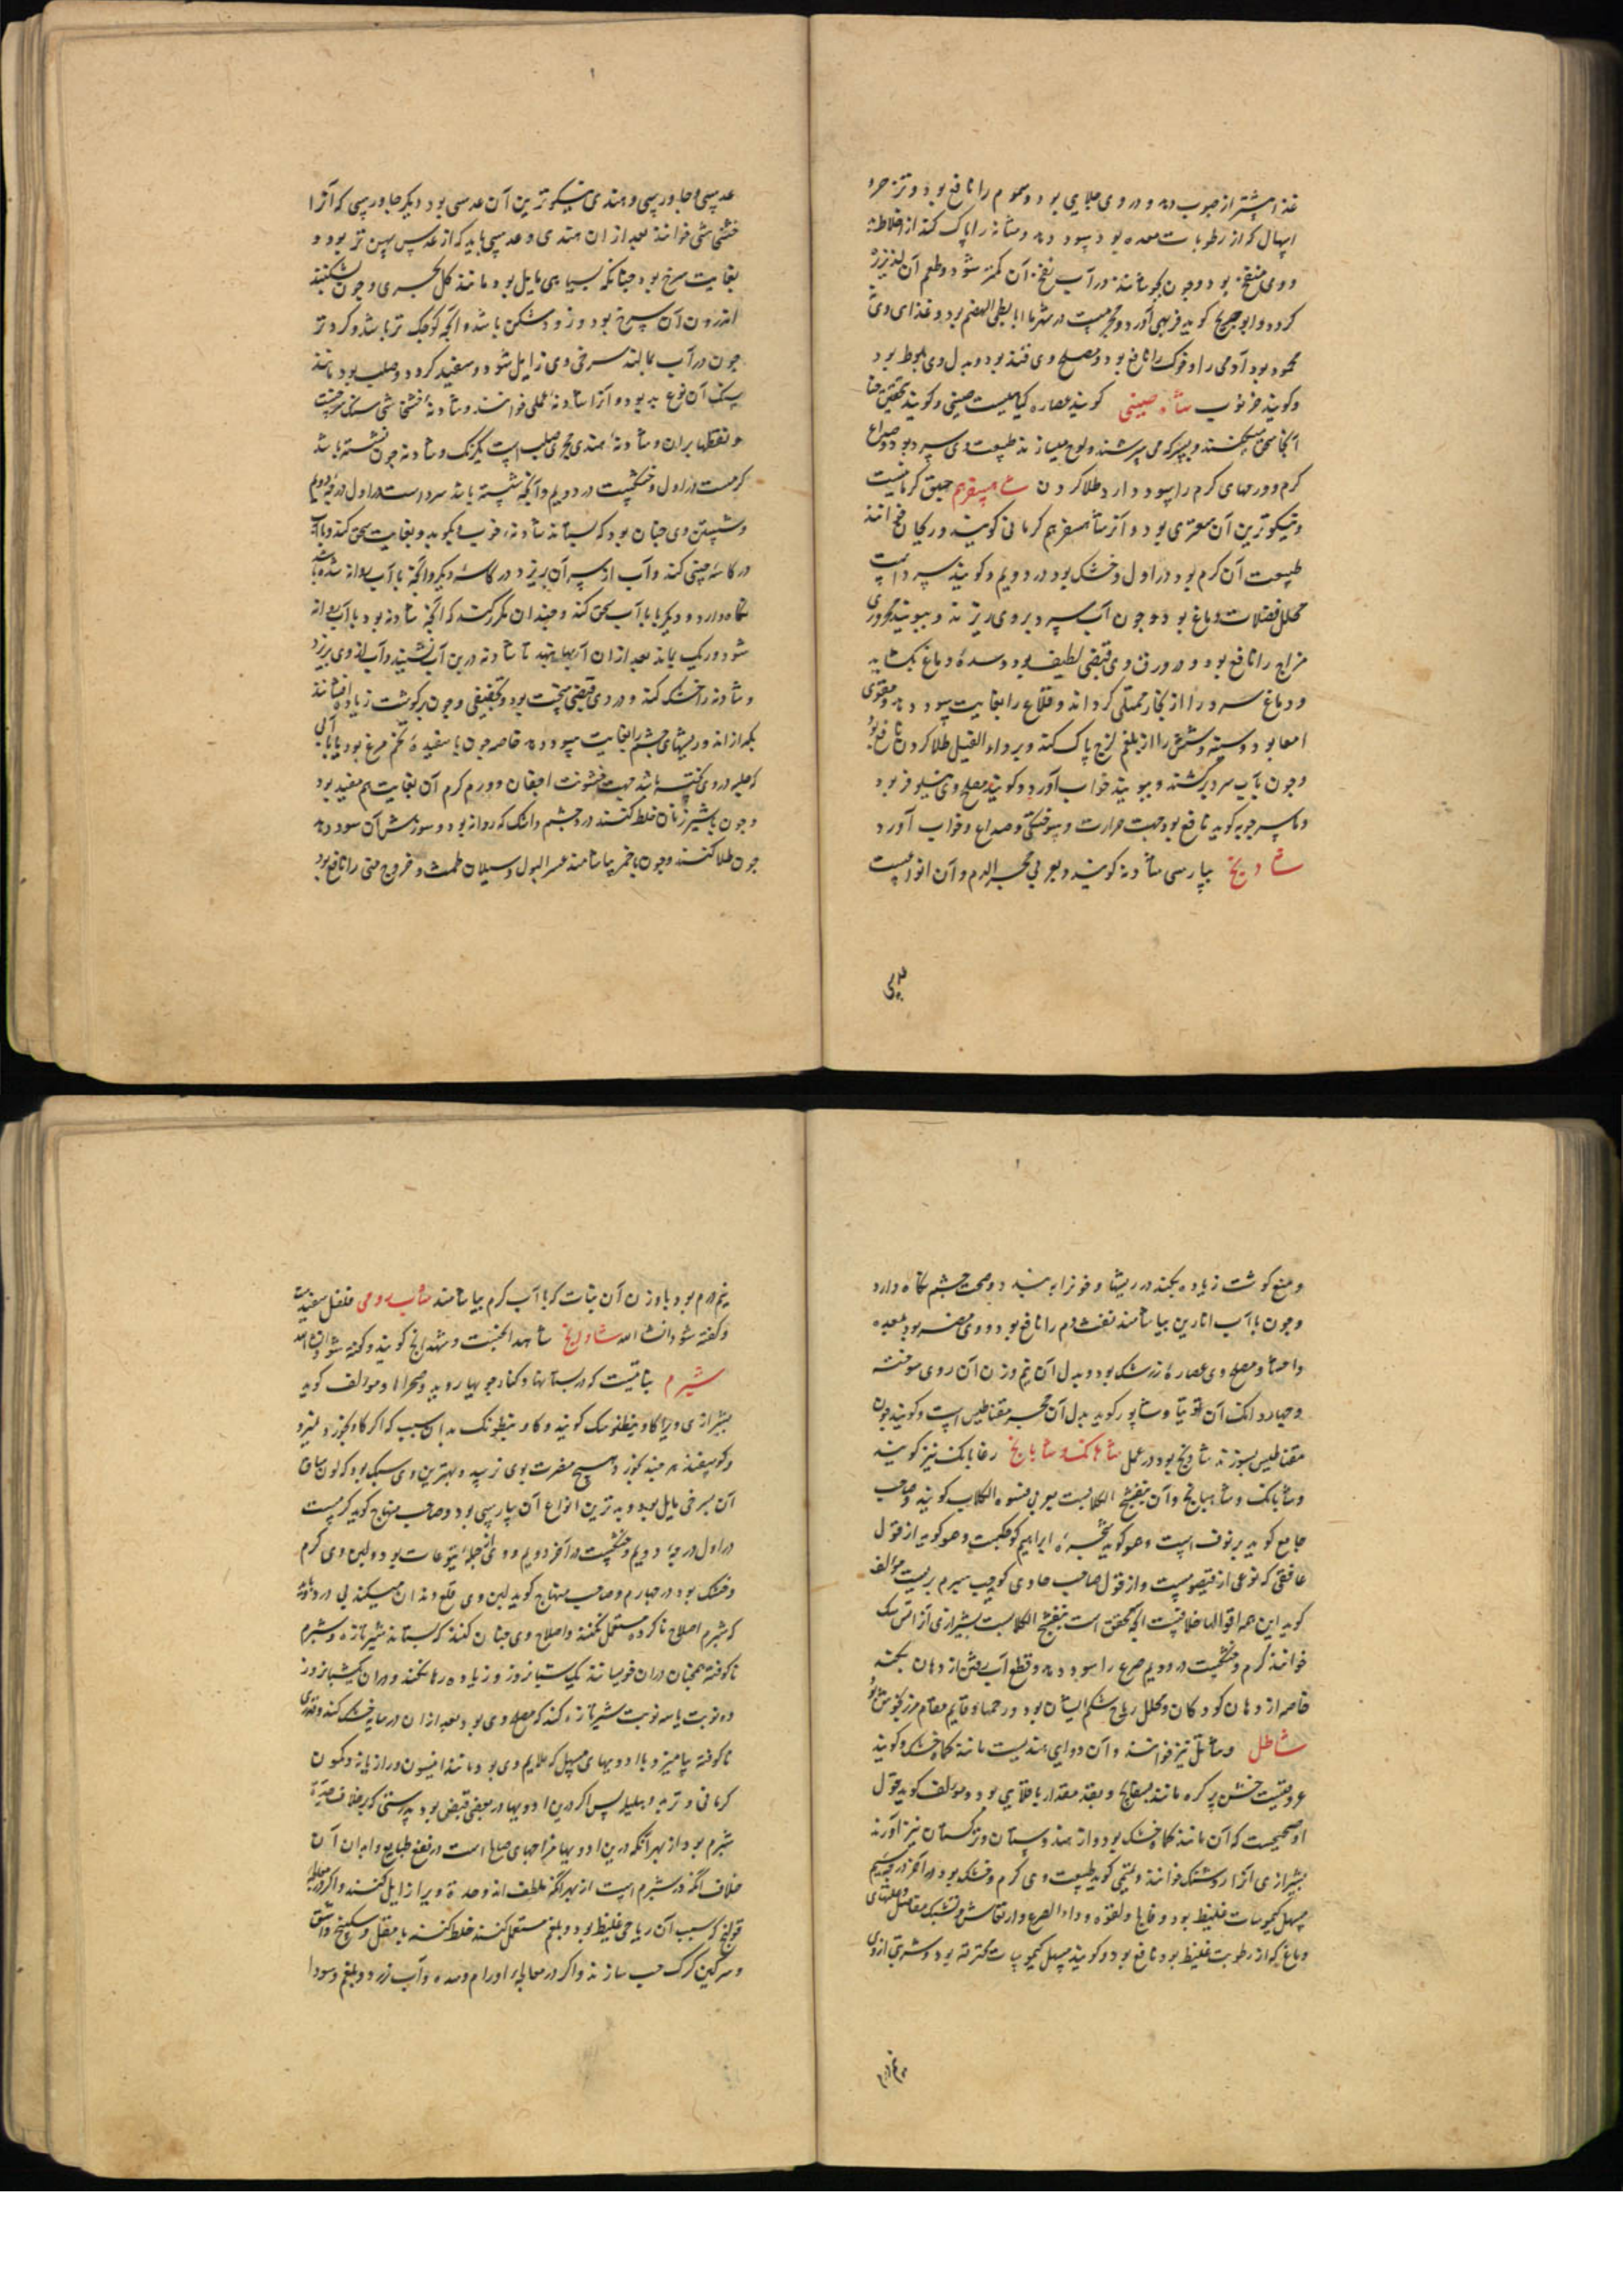 غذا بیشتر از حبوب دهد و در وی جلایی بود و سموم را نافع بود و تر
اسهال که از رطوبات معده بود سود دهد و مثانه را پاک کند از اخلاط
و وی منفخ بود و چون بجوشانند در آب نفخ آن کمتر شود و طعم آن لذیذتر
کردد و ابو جریج کوید فربهی آورد و بطی الهضم بود و غذای وی
محمود بود آدمی را و خوک را نافع بود و مصلح وی قند بود و بدل وی بلوط بود
و کویند خرنوب شاه صینی کویند عصاره کیاهیست صینی و کویند تحقیق حنا
آنجا سحق میکنند و بسرکه می سرشند و لوح میسازند طبیعت وی سرد بود صداع
کرم و ورمهای کرم را سود دارد طلا کردن شاهسفرم حبق کرمانیست
و نیکوترین آن صعتری بود و آنرا شاهسفرم کرمانی کویند و ریحان خوانند
طبیعت آن کرم بود در اول و خشک بود در دویم و کویند سرد است
محلل فضلات دماغ بود و چون آب سرد بر وی ریزند و ببویند محروری
مزاج را نافع بود و در ورق وی قبضی لطیف بود و سده دماغ بکشاید
و دماغ سرد را از بخار ممتلی کرداند و قلاع را بغایت سود دهد و مقوی
امعا بود و سینه و شش را از بلغم لزج پاک کند و بر داء الفیل طلا کردن نافع بود
و چون بآب سرد برکشند و ببویند خواب آورد و کویند مصلح وی نیلوفر بود
و ماسرجویه کوید نافع بود جهت حرارت و سوختکی و صداع و خواب آورد
شادنج بپارسی شادنه کویند و بعربی حجر الدم و آن انواعیست
عدسی و جاورسی و هندی نیکوترین آن عدسی بود دیکر جاورسی که آنرا
خشخاشی خوانند بعد از ان هندی و عدسی باید که از عدس پهن تر بود و
بغایت سرخ بود چنانکه بسیاهی مایل بود مانند کل حجری و چون بشکنند
اندرون آن سرخ بود و زود شکن باشد و آنچه کوچک تر باشد و کردتر
چون در آب بمالند سرخی وی زایل شود و سفید کردد و صلب بود مانند
سنک آن نوع بد بود و آنرا شادنه عملی خوانند و شادنه خشخاشی سنک سرخست
و نقطها بران و شادنه هندی حجری صلب است یکرنک و شادنه چون نشسته باشد
کرمست در اول و خشکست در دویم و آنچه شسته باشد سرد است در اول درجه دویم
و شستن وی چنان بود که بستانند شادنه خوب و بکوبد و بغایت سحق کند و بآب
در کاسه چینی کند و آب از سر آن بریزد در کاسه دیکر و آنچه با آب روانه شده باشد
نکاه دارد و دیکر با با آب سحق کند و چندان مکرر کند که آنچه شادنه بود با آب روانه
شود و ریک بماند بعد از ان آبها بنهد تا شادنه درین آب نشیند و آب از وی بریزد
و شادنه را خشک کند و در وی قبضی سخت بود و تجفیفی و چون بر کوشت زیاده افشانند
بکدازاند و ریشهای چشم را بغایت سود دهد خاصه چون با سفیده تخم مرغ بود یا با آبی
که حلبه در وی پخته باشد جهت خشونت اجفان و ورم کرم آن بغایت مفید بود
و چون با شیر زنان خلط کنند درد چشم و اشک که روانه بود و سوزش آن سود دهد
چون طلا کنند و چون با خمر بیاشامند عسر البول و سیلان طمث و خروج منی را نافع بود
و منع کوشت زیاده بکند در ریشها و خون را ببندد و صحت چشم نکاه دارد
و چون با آب انارین بیاشامند نفث دم را نافع بود و وی مضر بود بمعده
و احشا و مصلح وی عصاره زرشک بود و بدل آن نیم وزن آن روی سوخته
و چهار دانک آن توتیا و شاپور کوید بدل آن حجر مقناطیس است و کویند چون
مقناطیس بسوزند شادنج بود در عمل شاهبانک و شابانج رعابانک نیز کویند
و شابانک و شاهبانج و آن بنفسج الکلابست بعربی فسوه الکلاب کویند و صاحب
جامع کوید برنوف است و هو کوید شجره ابراهیم کوچکست و هو کوید از قول
غافقی که نوعی از قیصومست و از قول صاحب حاوی کوید سیرم بریست مولف
کوید این همه اقوالها خلافست آنچه محقق است بنفسج الکلابست بشیرازی آنرا
خوانند کرم و خشکست در دویم صرع را سود دهد و قطع آب رفتن از دهان بکند
خاصه از دهان کودکان و محلل ریاح شکم ایشان بود و در حمها و قایم مقام مرزنجوش بود
شاطل و شاتل نیز خوانند و آن دوایی هندیست مانند کماة خشک و کویند
عروقیست خشن پر کره مانند بسفایج و بعقد مقدار باقلایی بود و مولف کوید قول
او صحیحست که آن مانند کماة خشک بود و از هندوستان و ترکستان نیز آورند
بشیرازی آنرا روشنک خوانند و تمیمی کوید طبیعت وی کرم و خشک بود در آخر درجه سیم
مسهل کیموسات غلیظ بود و فالج و لقوه و داء الصرع و ارتعاش و تشبک مفاصل و علتهای
دماغ که از رطوبت غلیظ بود نافع بود و کویند مسهل کیموسات محترقه بود و شربتی از وی
نیم درم بود با وزن آن نبات که با آب کرم بیاشامند شاب رومی فلفل سفیدست
و کفته شود انشا الله شاهدانج شاهدانجست و شهدانج کویند و کفته شود انشا الله
شبرم نباتیست که در بستانها و کنار جویها روید و صحراها و مولف کوید
بشیرازی ویرا کاو بنطونک کویند و کاو بنطونک بدان سبب که اکر کاو بخورد بمیرد
و کوسفند هر چند بخورد هیچ مضرت بوی نرسد و بهترین وی سبک بود که لون ساق
آن بسرخی مایل بود و بدترین انواع آن پارسی بود و صاحب منهاج کوید کرمست
در اول درجه دویم و خشکست در آخر دویم و وی از جمله یتوعات بود و لبن وی کرم
و خشک بود در چهارم و صاحب منهاج کوید لبن وی قلع دندان میکند بی درد و باید
که شبرم اصلاح ناکرده مستعمل نکنند و اصلاح وی چنان کنند که بستانند شیر تازه و شبرم
ناکوفته همچنان دران خوسانند یک شبانروز و زیاده رها نکنند و دران یکشبانروز
دو نوبت یا سه نوبت شیر تازه کنند که مصلح وی بود بعد از ان در سایه خشک کنند و قدری
ناکوفته بیامیزد با ادویهای مسهل که ملایم وی بود مانند انیسون و رازیانه و کمون
کرمانی و تربد و هلیله پس اکر درین ادویها در بعضی قبض بود بدرستی که بر خلاف حدة
شبرم بود از بهر آنکه درین ادویها مزاجهای صالح است در نفع طبایع و ابدان آن
خلاف آنکه در شبرم است از بهر آنکه ملطف اند و حدة ویرا زایل کنند و اکر در معالجه
قولنج که سبب آن ریاحی غلیظ بود و بلغم مستعمل کنند خلط کنند با مقل و سکبینج و اشق
و سرکین کرک حب سازند و اکر در معالجه اورام و سده و آب زرد و بلغم و سودا